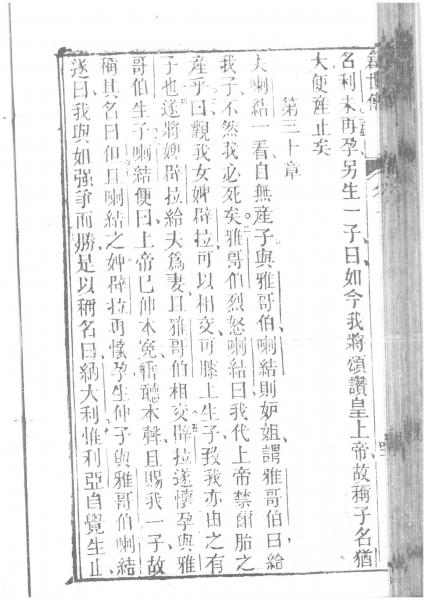 創世傳
名利未再孕另生一子曰如今我將頌讚皇上帝故稱子名猶
大便產止矣
第三十章
夫喇結一看自無產子與雅哥伯喇結則妒姐謂雅哥伯曰給
我子不然我必死矣雅哥伯烈怒喇結曰我代上帝禁爾胎之
產乎曰觀我女婢辟拉可以相交可膝上生子致我亦由之有
子也遂將婢辟拉給夫為妻且雅哥伯相交辟拉遂懷孕與雅
哥伯生子喇結便曰上帝已伸本冤垂聽本聲且賜我一子故
稱其名曰但且喇結之婢辟拉再懷孕生仲子與雅哥伯喇結
遂曰我與姐强爭而勝是以稱名曰納大利惟利亞自覺生止